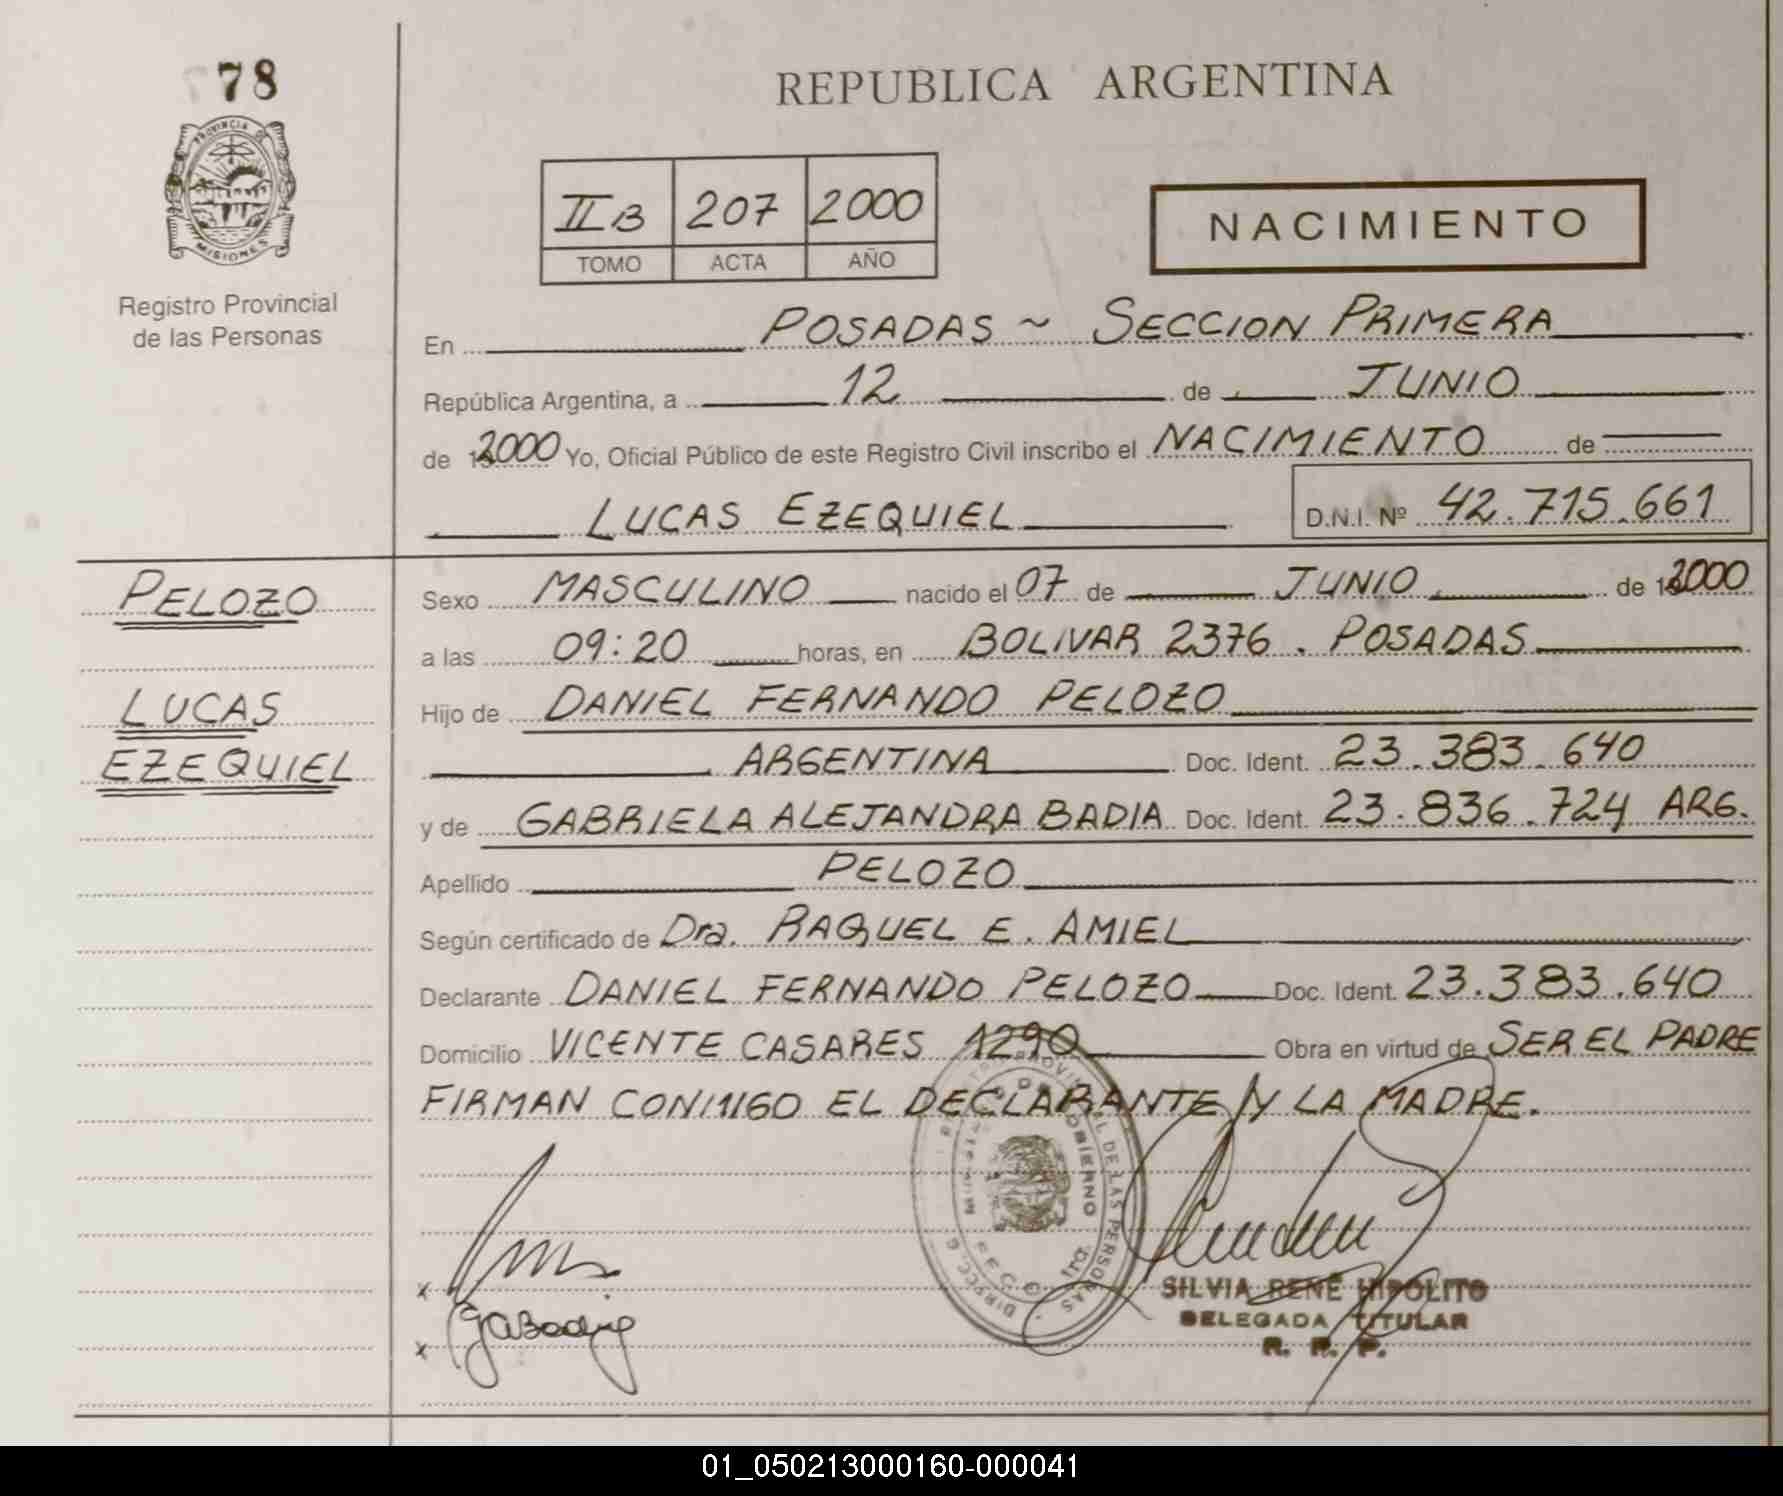 78
PROVINCIA DE
MISIONES
Registro Provincial
de las Personas
REPUBLICA ARGENTINA
II B 207 2000
TOMO ACTA AÑO
NACIMIENTO
En POSADAS ~ SECCION PRIMERA
República Argentina, a 12 de JUNIO
de 2000 Yo, Oficial Público de este Registro Civil inscribo el NACIMIENTO de
LUCAS EZEQUIEL D.N.I. Nº 42.715.661
PELOZO
LUCAS
EZEQUIEL
Sexo MASCULINO nacido el 07 de JUNIO de 2000
a las 09:20 horas, en BOLIVAR 2376. POSADAS
Hijo de DANIEL FERNANDO PELOZO
ARGENTINA Doc. Ident. 23.383.640
y de GABRIELA ALEJANDRA BADIA Doc. Ident. 23.836.724 ARG.
Apellido PELOZO
Según certificado de Dra. RAQUEL E. AMIEL
Declarante DANIEL FERNANDO PELOZO Doc. Ident. 23.383.640
Domicilio VICENTE CASARES 1290 Obra en virtud de SER EL PADRE
FIRMAN CONMIGO EL DECLARANTE Y LA MADRE.
DE LAS PERSONAS
GOBIERNO
x
x
SILVIA RENÉ HIPOLITO
DELEGADA TITULAR
R. R. P.
01_050213000160-000041